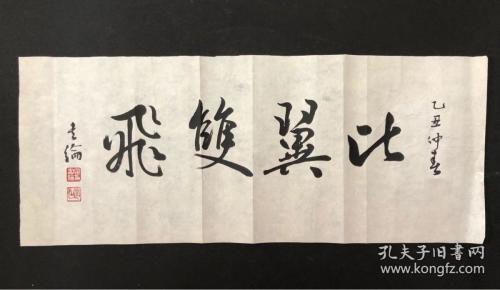 乙丑仲春
比翼雙飛
孔夫子旧书网
www.kongfz.com